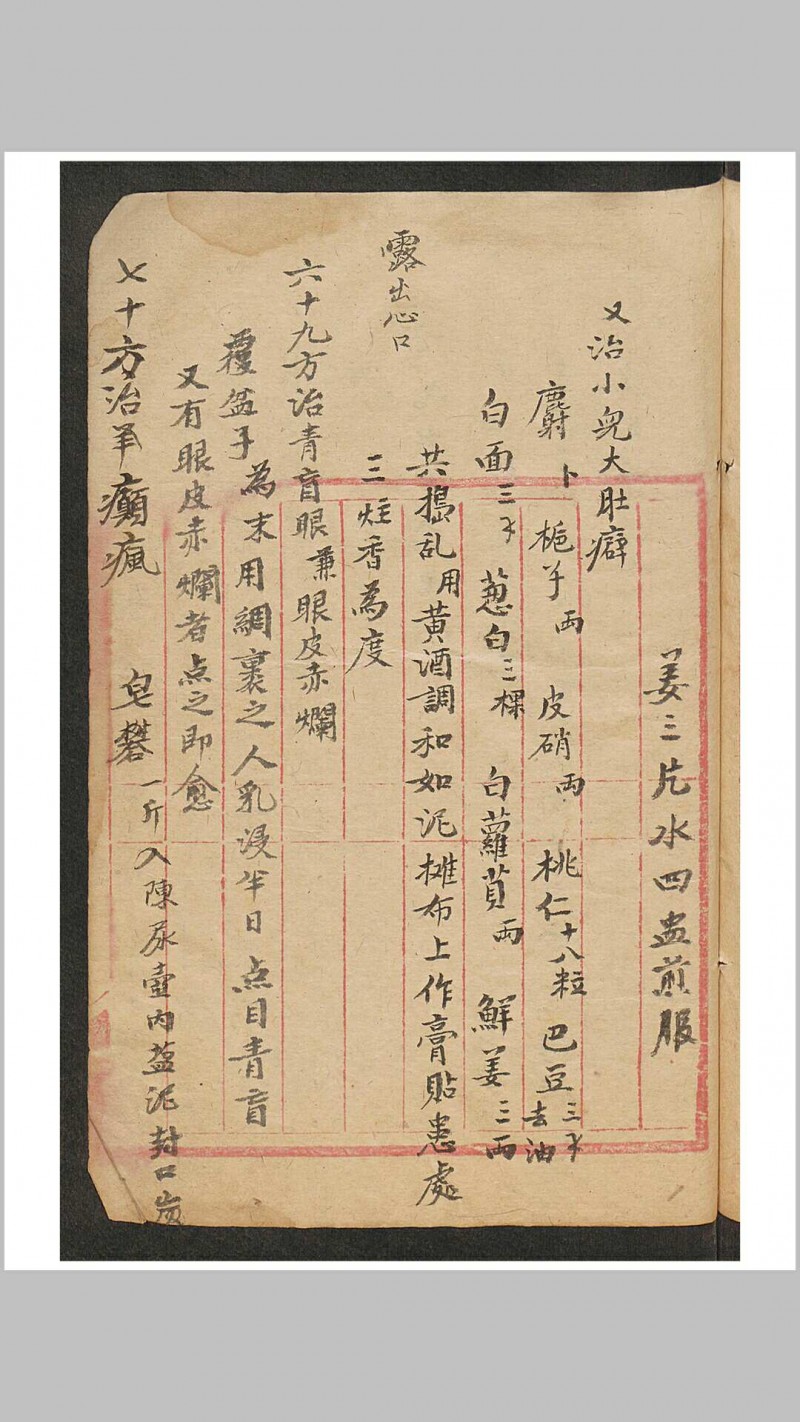 姜三片水四盅煎服
又治小兒大肚癖
麝卜 梔子両 皮硝両 桃仁十八粒 巴豆三才去油
白面三才 葱白三棵 白蘿蔔両 鮮姜三両
共搗乱用黄酒調和如泥摊布上作膏貼患處
露出心口
三炷香為度
六十九方治青盲眼兼眼皮赤爛
覆盆子為末用綢裹之人乳浸半日点目青盲
又有眼皮赤爛者点之即愈
七十方治羊癲瘋 皂礬一斤入陳尿壺内盐泥封口